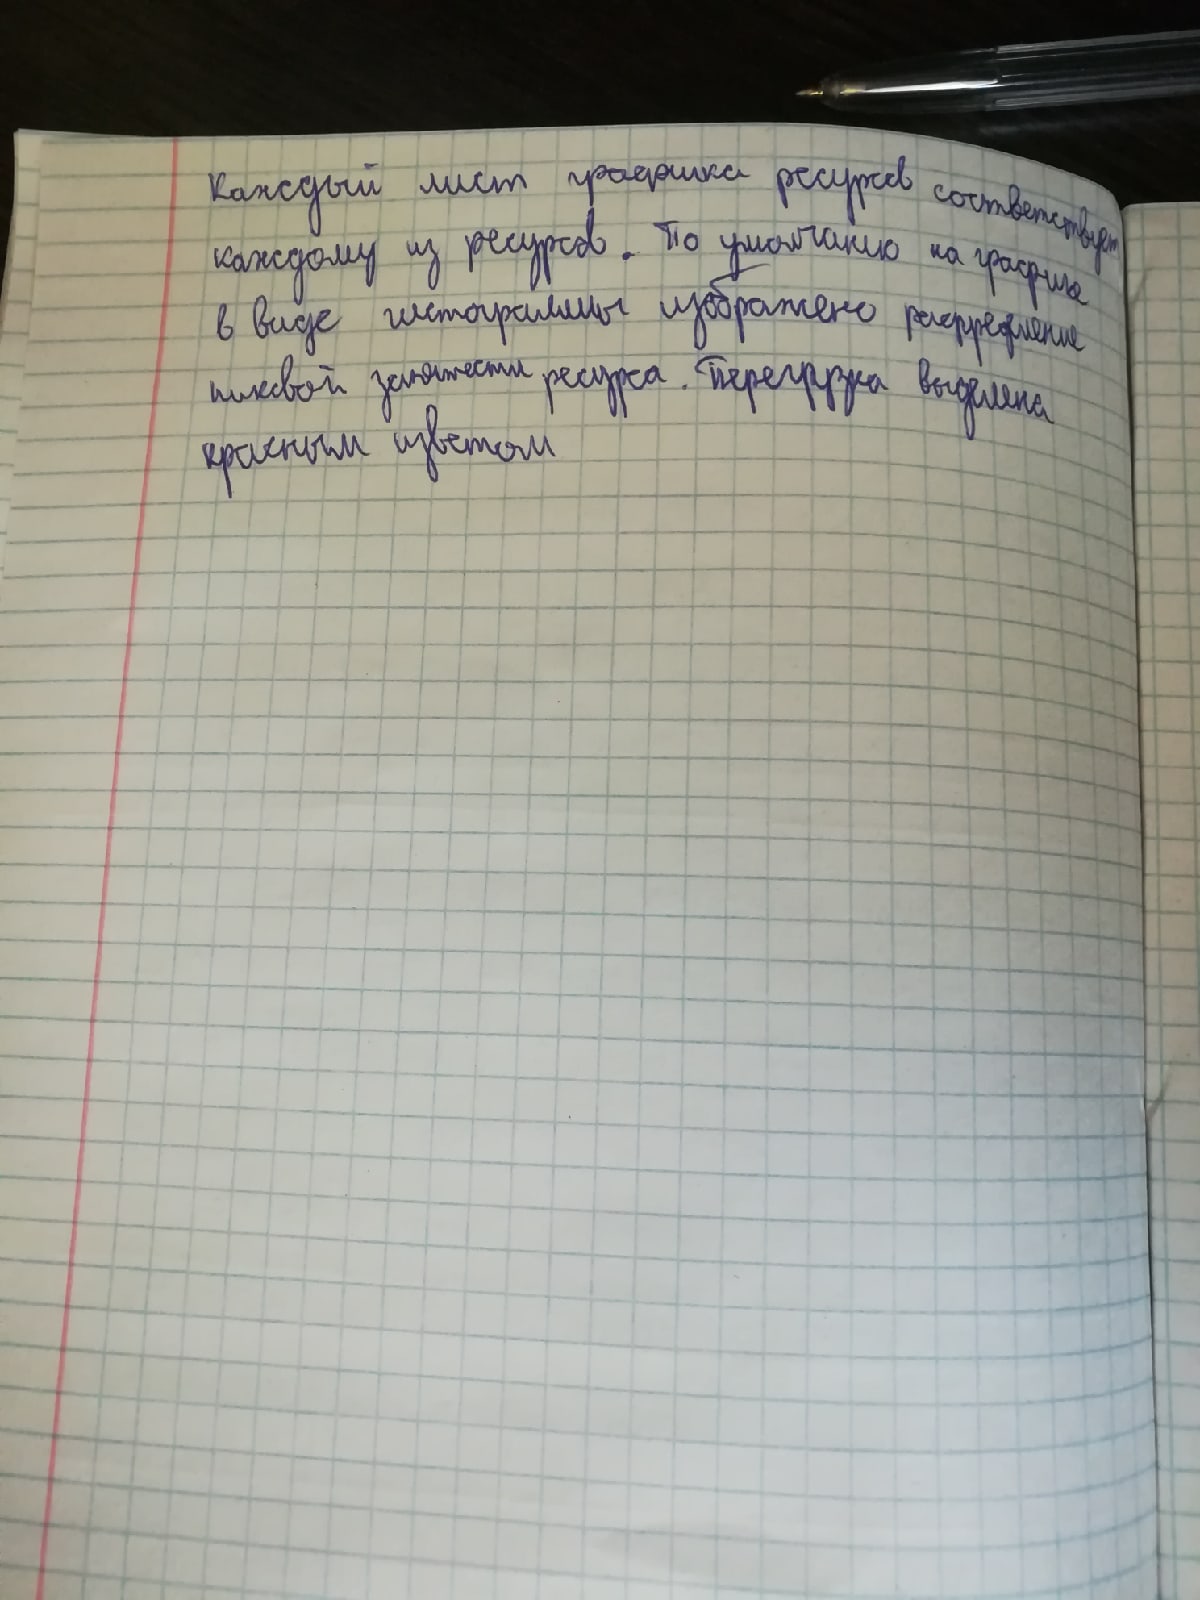 Каждый лист графика ресурсов соответствует
каждому из ресурсов. По умолчанию на графике
в виде гистограммы изображено распределение
пиковой занятости ресурса. Перегрузка выделена
красным цветом